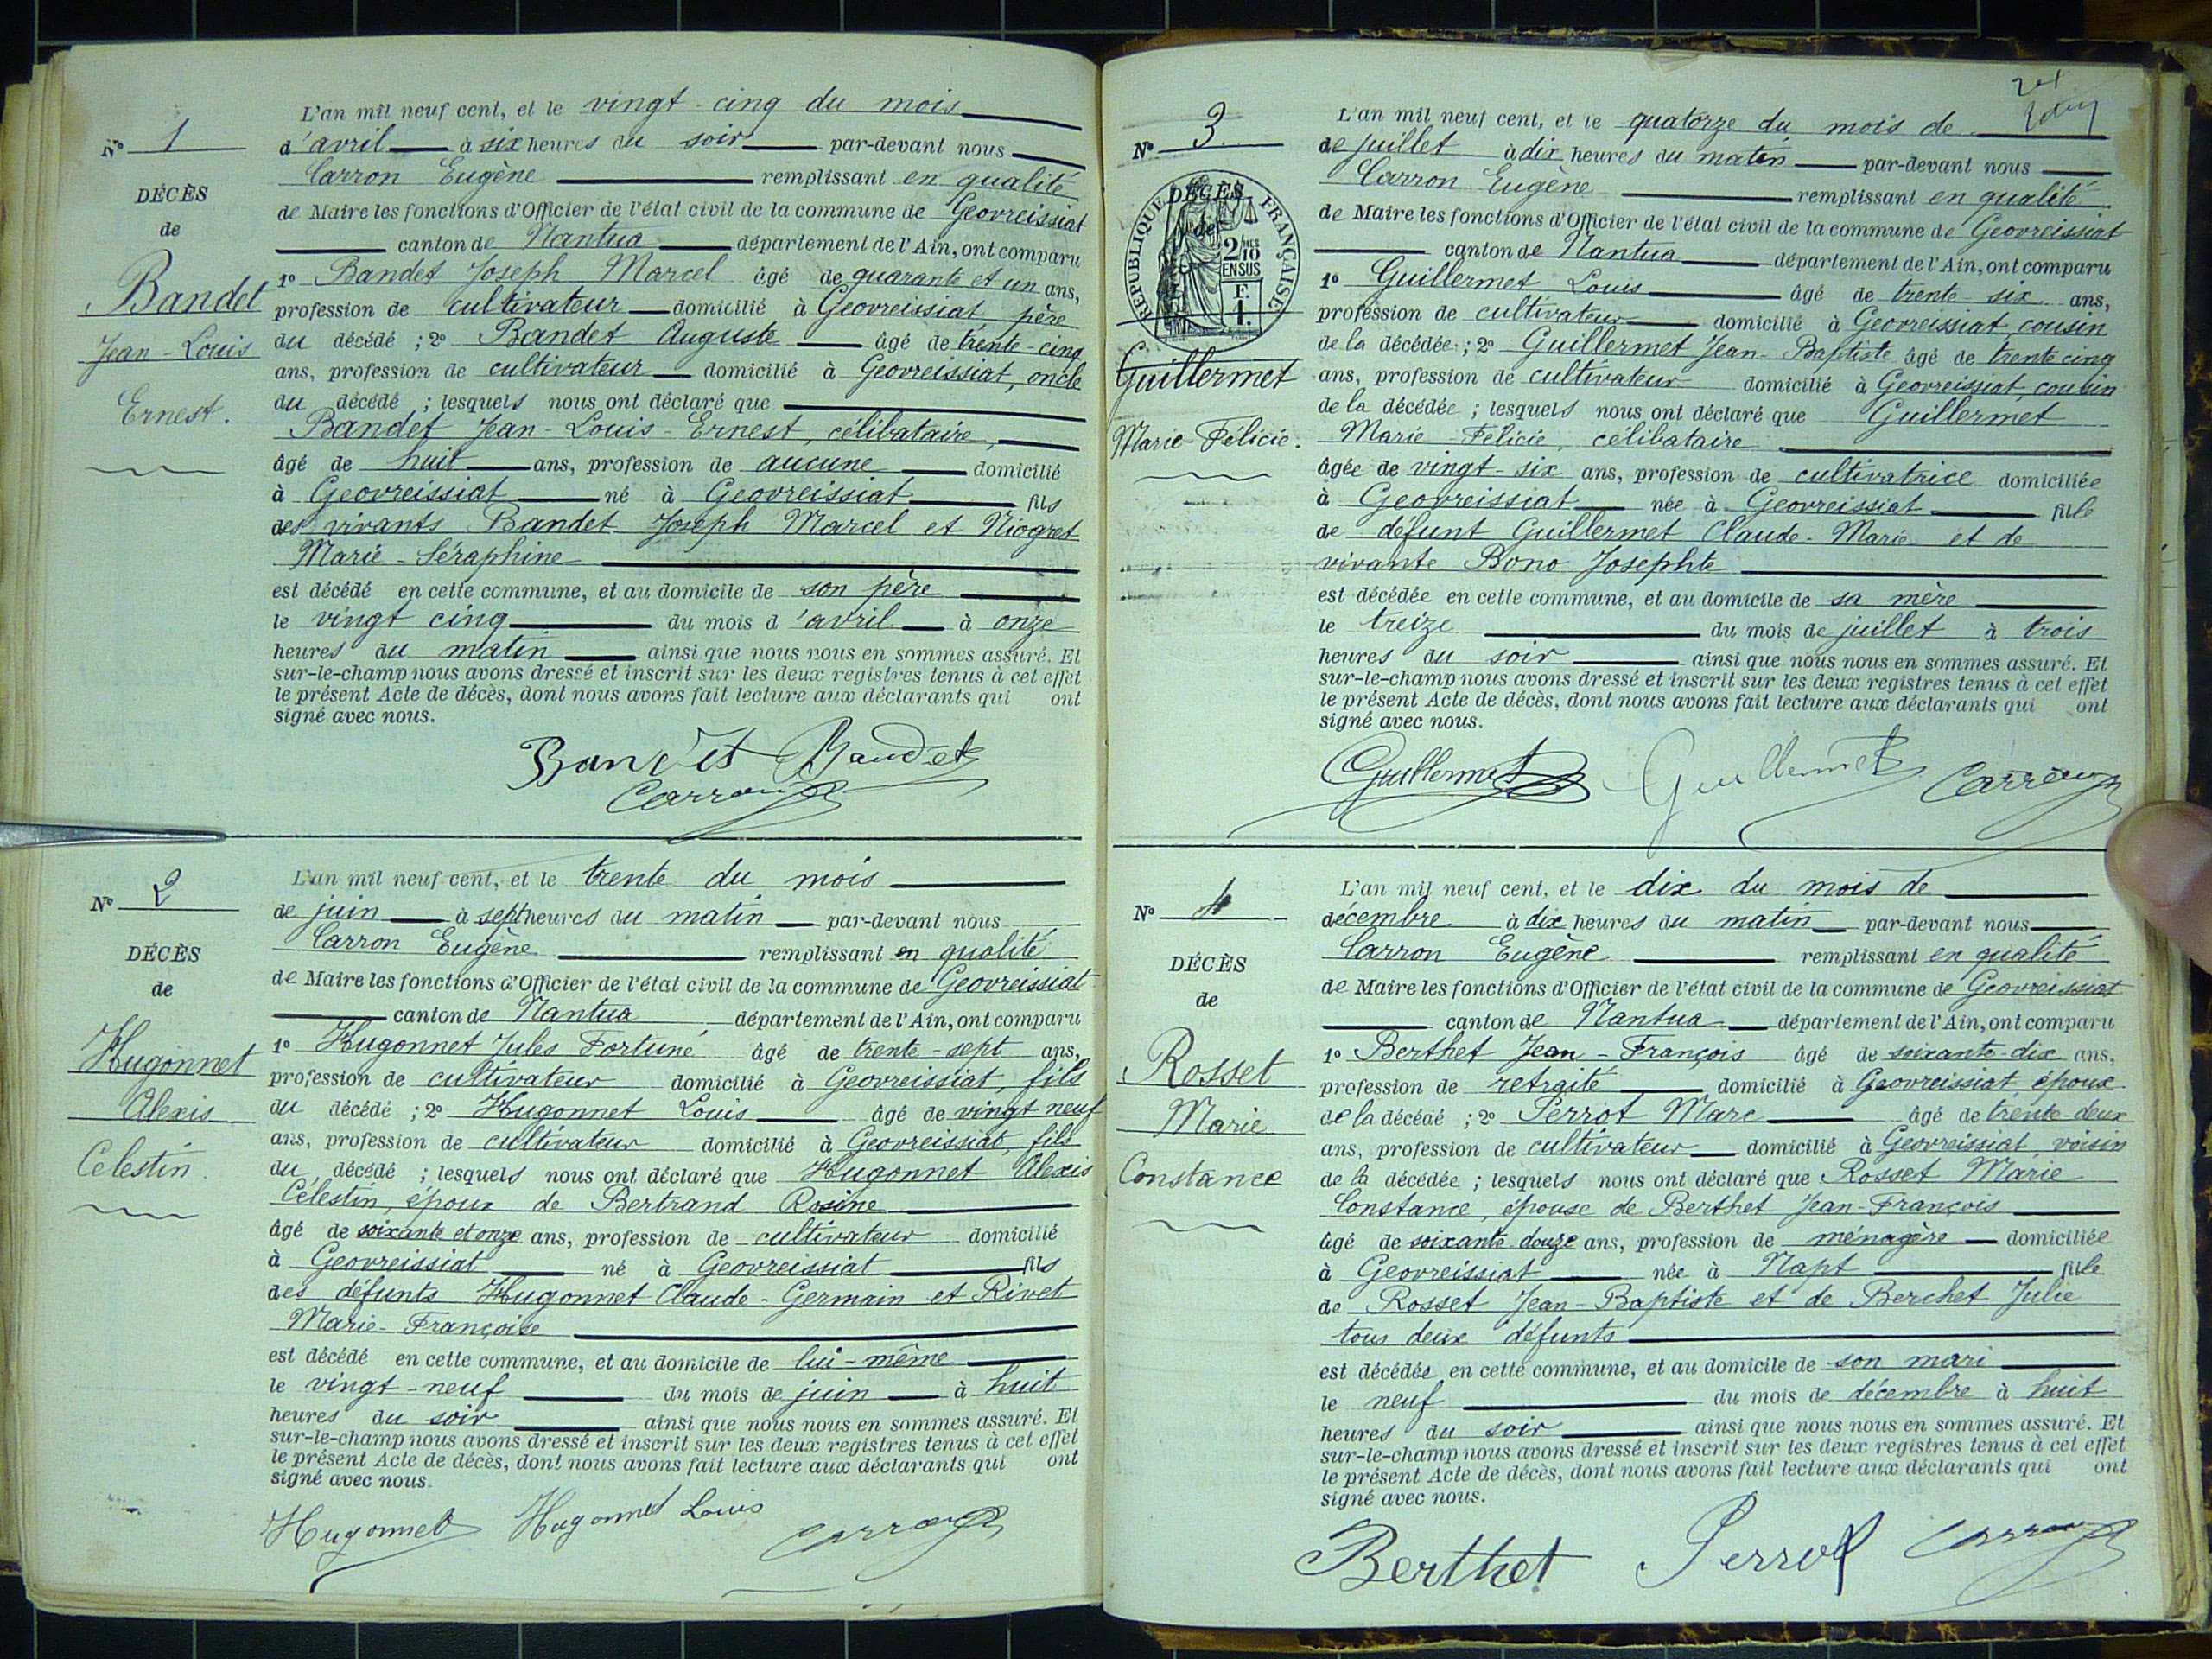 N° 1
DÉCÈS
de
Bandet
Jean-Louis
Ernest.
L'an mil neuf cent, et le vingt-cinq du mois
d'avril à six heures du soir par-devant nous
Carron Eugène remplissant en qualité
de Maire les fonctions d'Officier de l'état civil de la commune de Geovreissiat
canton de Nantua département de l'Ain, ont comparu
1° Bandet Joseph Marcel âgé de quarante et un ans,
profession de cultivateur domicilié à Geovreissiat père
du décédé ; 2° Bandet Auguste âgé de trente-cinq
ans, profession de cultivateur domicilié à Geovreissiat, oncle
du décédé ; lesquels nous ont déclaré que
Bandet Jean-Louis-Ernest, célibataire,
âgé de huit ans, profession de aucune domicilié
à Geovreissiat né à Geovreissiat fils
des vivants Bandet Joseph Marcel et Niogret
Marie-Séraphine
est décédé en cette commune, et au domicile de son père
le vingt cinq du mois d'avril à onze
heures du matin ainsi que nous nous en sommes assuré. Et
sur-le-champ nous avons dressé et inscrit sur les deux registres tenus à cet effet
le présent Acte de décès, dont nous avons fait lecture aux déclarants qui ont
signé avec nous.
Bandet Bandet
Carron
N° 2
DÉCÈS
de
Hugonnet
Alexis
Celestin.
L'an mil neuf cent, et le trente du mois
de juin à sept heures du matin par-devant nous
Carron Eugène remplissant en qualité
de Maire les fonctions d'Officier de l'état civil de la commune de Geovreissiat
canton de Nantua département de l'Ain, ont comparu
1° Hugonnet Jules Fortuné âgé de trente-sept ans,
profession de cultivateur domicilié à Geovreissiat, fils
du décédé ; 2° Hugonnet Louis âgé de vingt neuf
ans, profession de cultivateur domicilié à Geovreissiat, fils
du décédé ; lesquels nous ont déclaré que Hugonnet Alexis
Célestin, époux de Bertrand Rosine
âgé de soixante et onze ans, profession de cultivateur domicilié
à Geovreissiat né à Geovreissiat fils
des défunts Hugonnet Claude-Germain et Rivet
Marie-Françoise
est décédé en cette commune, et au domicile de lui-même
le vingt-neuf du mois de juin à huit
heures du soir ainsi que nous nous en sommes assuré. Et
sur-le-champ nous avons dressé et inscrit sur les deux registres tenus à cet effet
le présent Acte de décès, dont nous avons fait lecture aux déclarants qui ont
signé avec nous.
Hugonnet Hugonnet Louis Carron
N° 3
DÉCÈS
de
RÉPUBLIQUE FRANÇAISE
2/10
EN SUS
F.
1.
Guillermet
Marie-Félicie.
L'an mil neuf cent, et le quatorze du mois de
de juillet à dix heures du matin par-devant nous
Carron Eugène remplissant en qualité
de Maire les fonctions d'Officier de l'état civil de la commune de Geovreissiat
canton de Nantua département de l'Ain, ont comparu
1° Guillermet Louis âgé de trente-six ans,
profession de cultivateur domicilié à Geovreissiat, cousin
de la décédée ; 2° Guillermet Jean-Baptiste âgé de trente cinq
ans, profession de cultivateur domicilié à Geovreissiat, cousin
de la décédée ; lesquels nous ont déclaré que Guillermet
Marie-Félicie, célibataire
âgée de vingt-six ans, profession de cultivatrice domiciliée
à Geovreissiat née à Geovreissiat fille
de défunt Guillermet Claude-Marie et de
vivante Bono Josephte
est décédée en cette commune, et au domicile de sa mère
le treize du mois de juillet à trois
heures du soir ainsi que nous nous en sommes assuré. Et
sur-le-champ nous avons dressé et inscrit sur les deux registres tenus à cet effet
le présent Acte de décès, dont nous avons fait lecture aux déclarants qui ont
signé avec nous.
Guillermet Guillermet Carron
N° 4
DÉCÈS
de
Rosset
Marie
Constance
L'an mil neuf cent, et le dix du mois de
décembre à dix heures du matin par-devant nous
Carron Eugène remplissant en qualité
de Maire les fonctions d'Officier de l'état civil de la commune de Geovreissiat
canton de Nantua département de l'Ain, ont comparu
1° Berthet Jean-François âgé de soixante-dix ans,
profession de retraité domicilié à Geovreissiat, époux
de la décédé ; 2° Perrot Marc âgé de trente-deux
ans, profession de cultivateur domicilié à Geovreissiat, voisin
de la décédée ; lesquels nous ont déclaré que Rosset Marie
Constance, épouse de Berthet Jean-François
âgé de soixante-douze ans, profession de ménagère domiciliée
à Geovreissiat née à Napt fille
de Rosset Jean-Baptiste et de Berchet Julie
tous deux défunts
est décédée en cette commune, et au domicile de son mari
le neuf du mois de décembre à huit
heures du soir ainsi que nous nous en sommes assuré. Et
sur-le-champ nous avons dressé et inscrit sur les deux registres tenus à cet effet
le présent Acte de décès, dont nous avons fait lecture aux déclarants qui ont
signé avec nous.
Berthet Perrot Carron